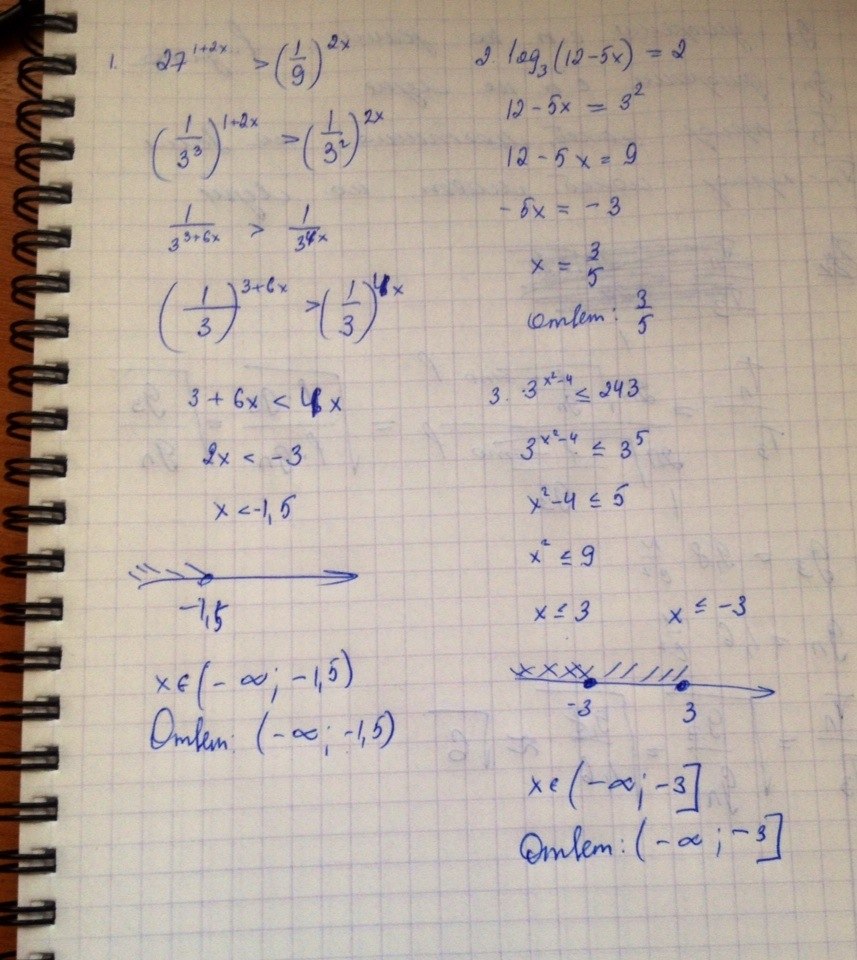 1. 27^(1+2x) > (1/9)^(2x)
(1/3^3)^(1+2x) > (1/3^2)^(2x)
1/3^(3+6x) > 1/3^(4x)
(1/3)^(3+6x) > (1/3)^(4x)
3 + 6x < 4x
2x < -3
x < -1,5
-1,5
x ∈ (-∞; -1,5)
Ответ: (-∞; -1,5)
2. log_3(12-5x) = 2
12-5x = 3^2
12-5x = 9
-5x = -3
x = 3/5
Ответ: 3/5
3. 3^(x^2-4) ≤ 243
3^(x^2-4) ≤ 3^5
x^2-4 ≤ 5
x^2 ≤ 9
x ≤ 3 x ≤ -3
-3 3
x ∈ (-∞; -3]
Ответ: (-∞; -3]